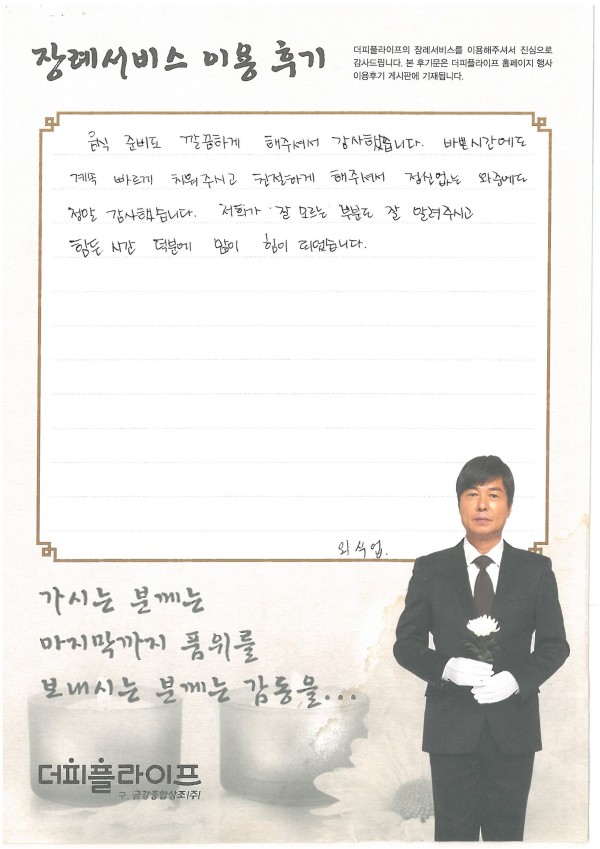 장례서비스 이용 후기
더피플라이프의 장례서비스를 이용해주셔서 진심으로
감사드립니다. 본 후기문은 더피플라이프 홈페이지 행사
이용후기 게시판에 기재됩니다.
음식 준비도 깔끔하게 해주셔서 감사했습니다. 바쁜시간에도
계속 빠르게 치워주시고 친절하게 해주셔서 정신없는 와중에도
정말 감사했습니다. 저희가 잘 모르는 부분도 잘 알려주시고
힘든 시간 덕분에 많이 힘이 되었습니다.
가시는 분께는
마지막까지 품위를
보내시는 분께는 감동을...
더피플라이프
구. 금강종합상조(주)